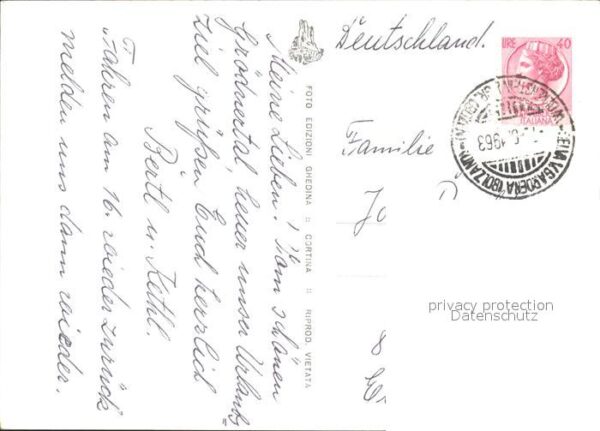 Meine Lieben! Vom schönen
Grödnertal, heuer unser Urlaubs-
ziel grüßen Euch herzlich
Bertl u. Kathl.
Fahren am 16. wieder zurück
melden uns dann wieder.
FOTO EDIZIONI GHEDINA :: CORTINA :: RIPROD. VIETATA
Deutschland.
LIRE 40
ITALIANA
SELVA V. GARDENA (BOLZANO)
1963
Familie
Jo
8
privacy protection
Datenschutz